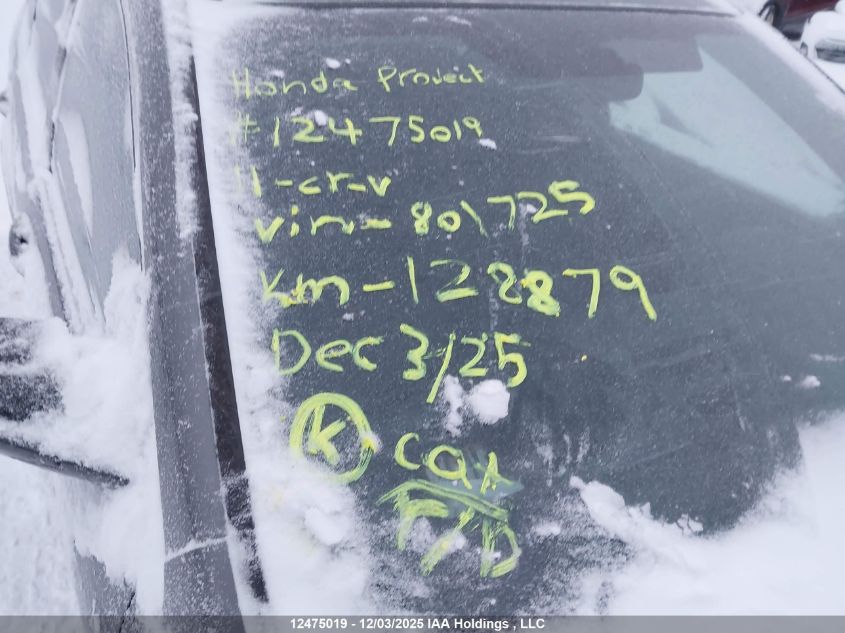 Honda Project
#12475019
11-cr-v
vin- 801725
Km-128879
Dec 3/25
K car
F/D
12475019 - 12/03/2025 IAA Holdings , LLC